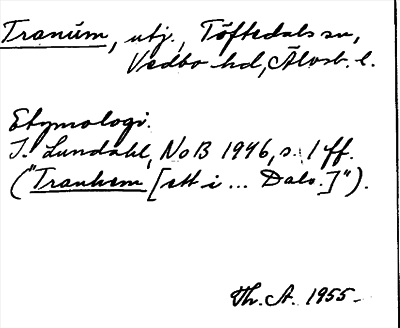 Tranúm, utj., Töftedals sn,
Vedbo hd, Älvsb. l.
Etymologi.
I. Lundahl, NoB 1946, s. 1 ff.
("Tranhem [ett i ... Dals.]").
Th. A. 1955.